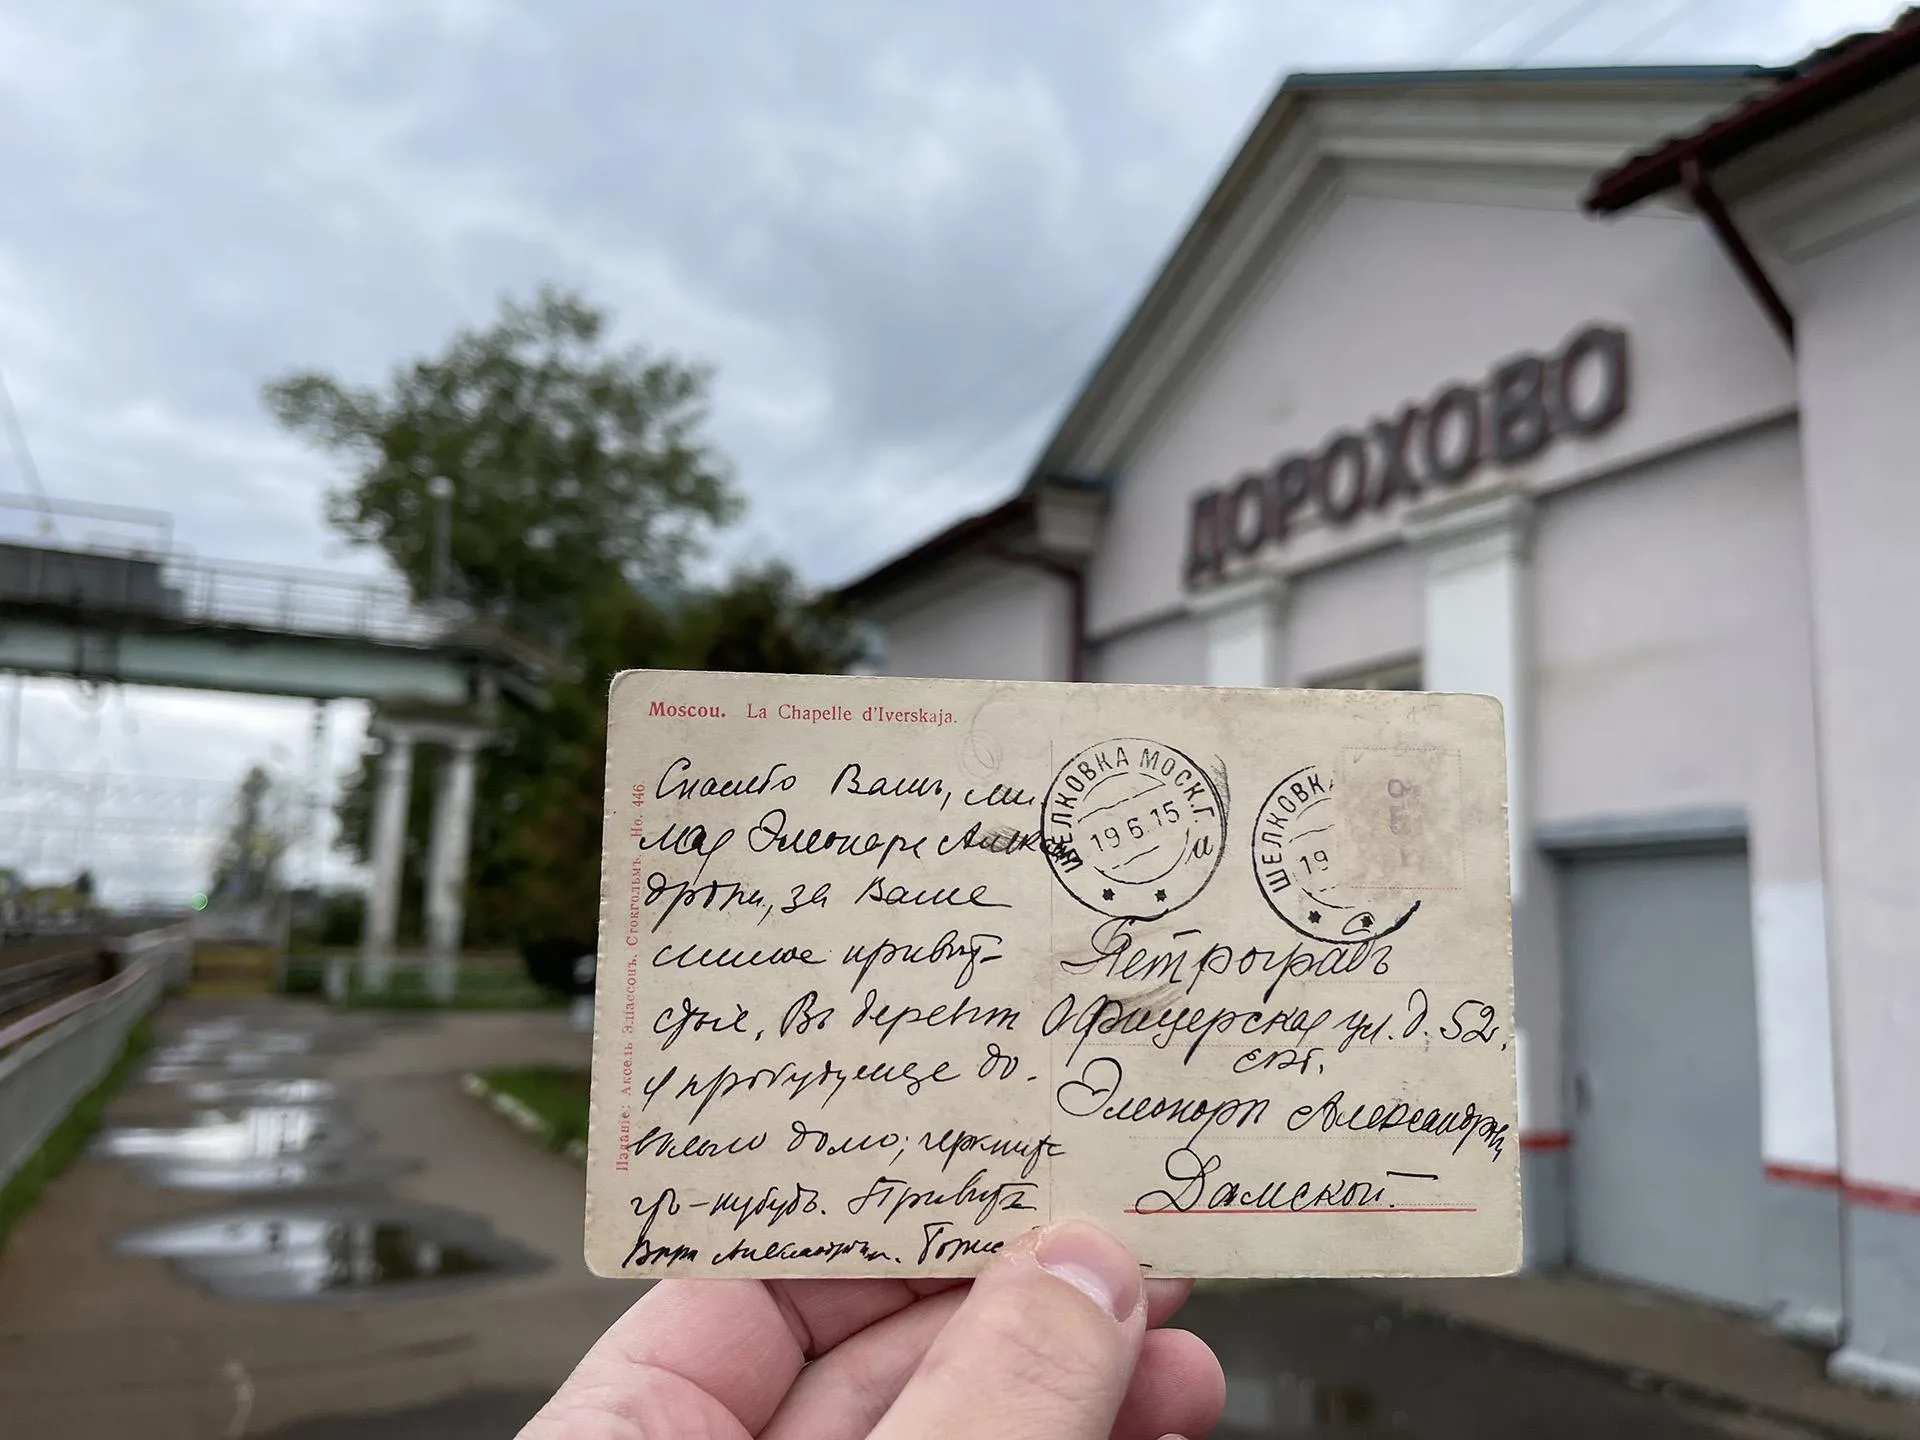 ДОРОХОВО
Moscou. La Chapelle d'Iverskaja.
Изданіе: Аксель Эліассонъ, Стокгольмъ. Но. 446
ШЕЛКОВКА МОСК.Г.
19 6 15
а
ШЕЛКОВК
19
Спасибо Вамъ, ми-
лая Элеонора Алекс
дровна, за Ваше
милое привѣт-
ствіе. Въ
я пробуду еще до-
вольно долго; черкните
что-нибудь. Привѣтъ
Вѣра Александровна.
Петроградъ
Офицерская ул. д. 52,
Элеонорѣ Александровнѣ
Дамской.